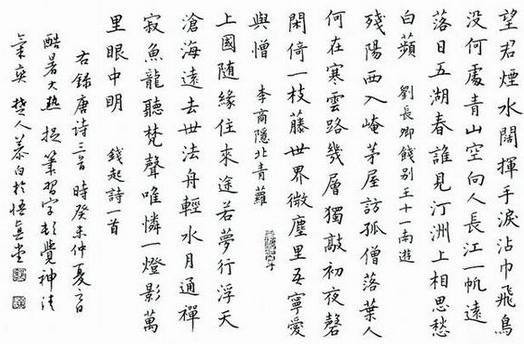 望君煙水闊揮手淚沾巾飛鳥
没何處青山空向人長江一帆遠
落日五湖春誰見汀洲上相思愁
白蘋 劉長卿餞别王十一南遊
殘陽西入崦茅屋訪孤僧落葉人
何在寒雲路幾層獨敲初夜磬
閑倚一枝藤世界微塵里吾寧愛
與憎 李商隱北青蘿
上國隨緣住來途若夢行浮天
滄海遠去世法舟輕水月通禪
寂魚龍聽梵聲唯憐一燈影萬
里眼中明 錢起詩一首
右錄唐诗三首 時癸未仲夏
酷暑大热 捉筆習字 覺神清
氣爽 楚人慕白於悟真堂